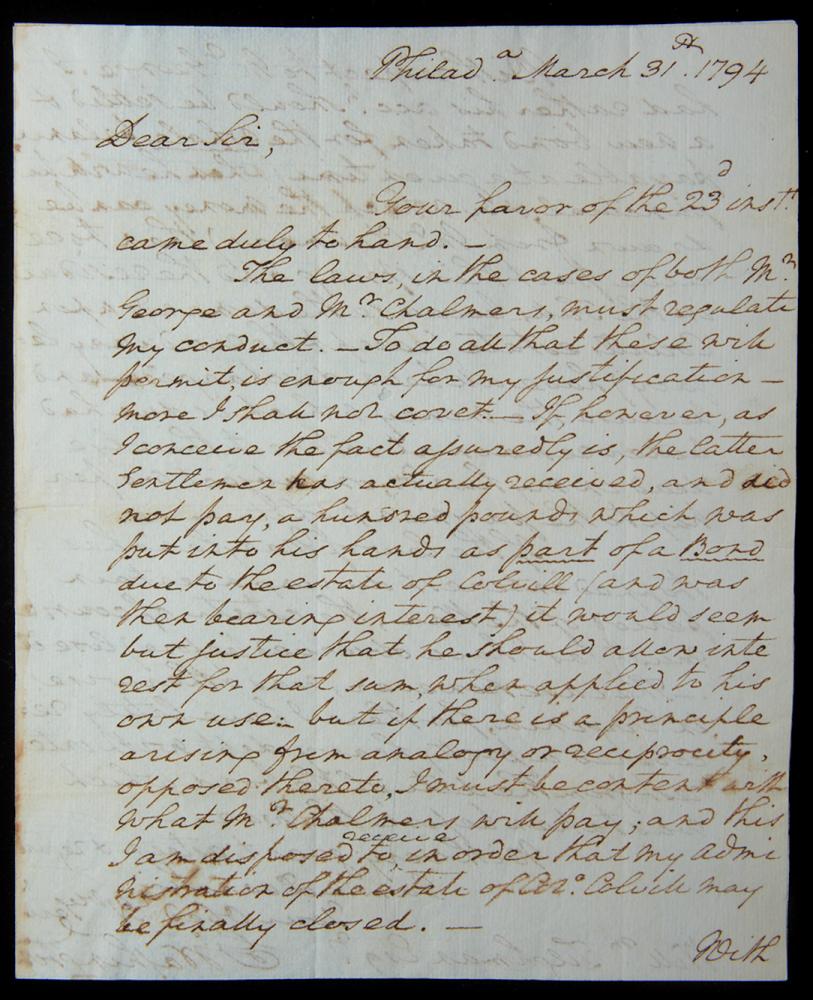 Philad.ª March 31st. 1794
Dear Sir,
Your favor of the 23d inst.
came duly to hand. —
The laws, in the cases of both Mr.
George and Mr. Chalmers, must regulate
my conduct. — To do all that these will
permit, is enough for my justification —
more I shall not covet. — If, however, as
I conceive the fact assuredly is, the latter
Gentleman has actually received, and did
not pay, a hundred pounds which was
put into his hands as part of a Bond
due to the estate of Colvill (and was
then bearing interest) it would seem
but justice that he should allow inte
rest for that sum, when applied to his
own use:— but if there is a principle
arising from analogy or reciprocity,
opposed thereto, I must be content with
what Mr. Chalmers will pay; and this
receive
I am disposed to, in order that my admi
nistration of the estate of Colo. Colvill may
be finally closed. —
With